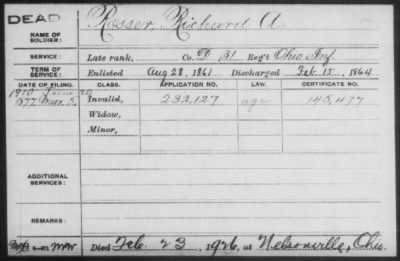 DEAD
NAME OF SOLDIER: Rosser, Richard A.
SERVICE: Late rank, Co. D, 31 Reg't Ohio Inf.
TERM OF SERVICE: Enlisted Aug 28, 1861 Discharged Feb 15, 1864
DATE OF FILING. CLASS. APPLICATION NO. LAW. CERTIFICATE NO.
1910 June 20
1877 Mar. 5, Invalid, 232,127 age 145,477
Widow,
Minor,
ADDITIONAL SERVICES:
REMARKS:
Died Feb. 23, 1926, at Nelsonville, Ohio.